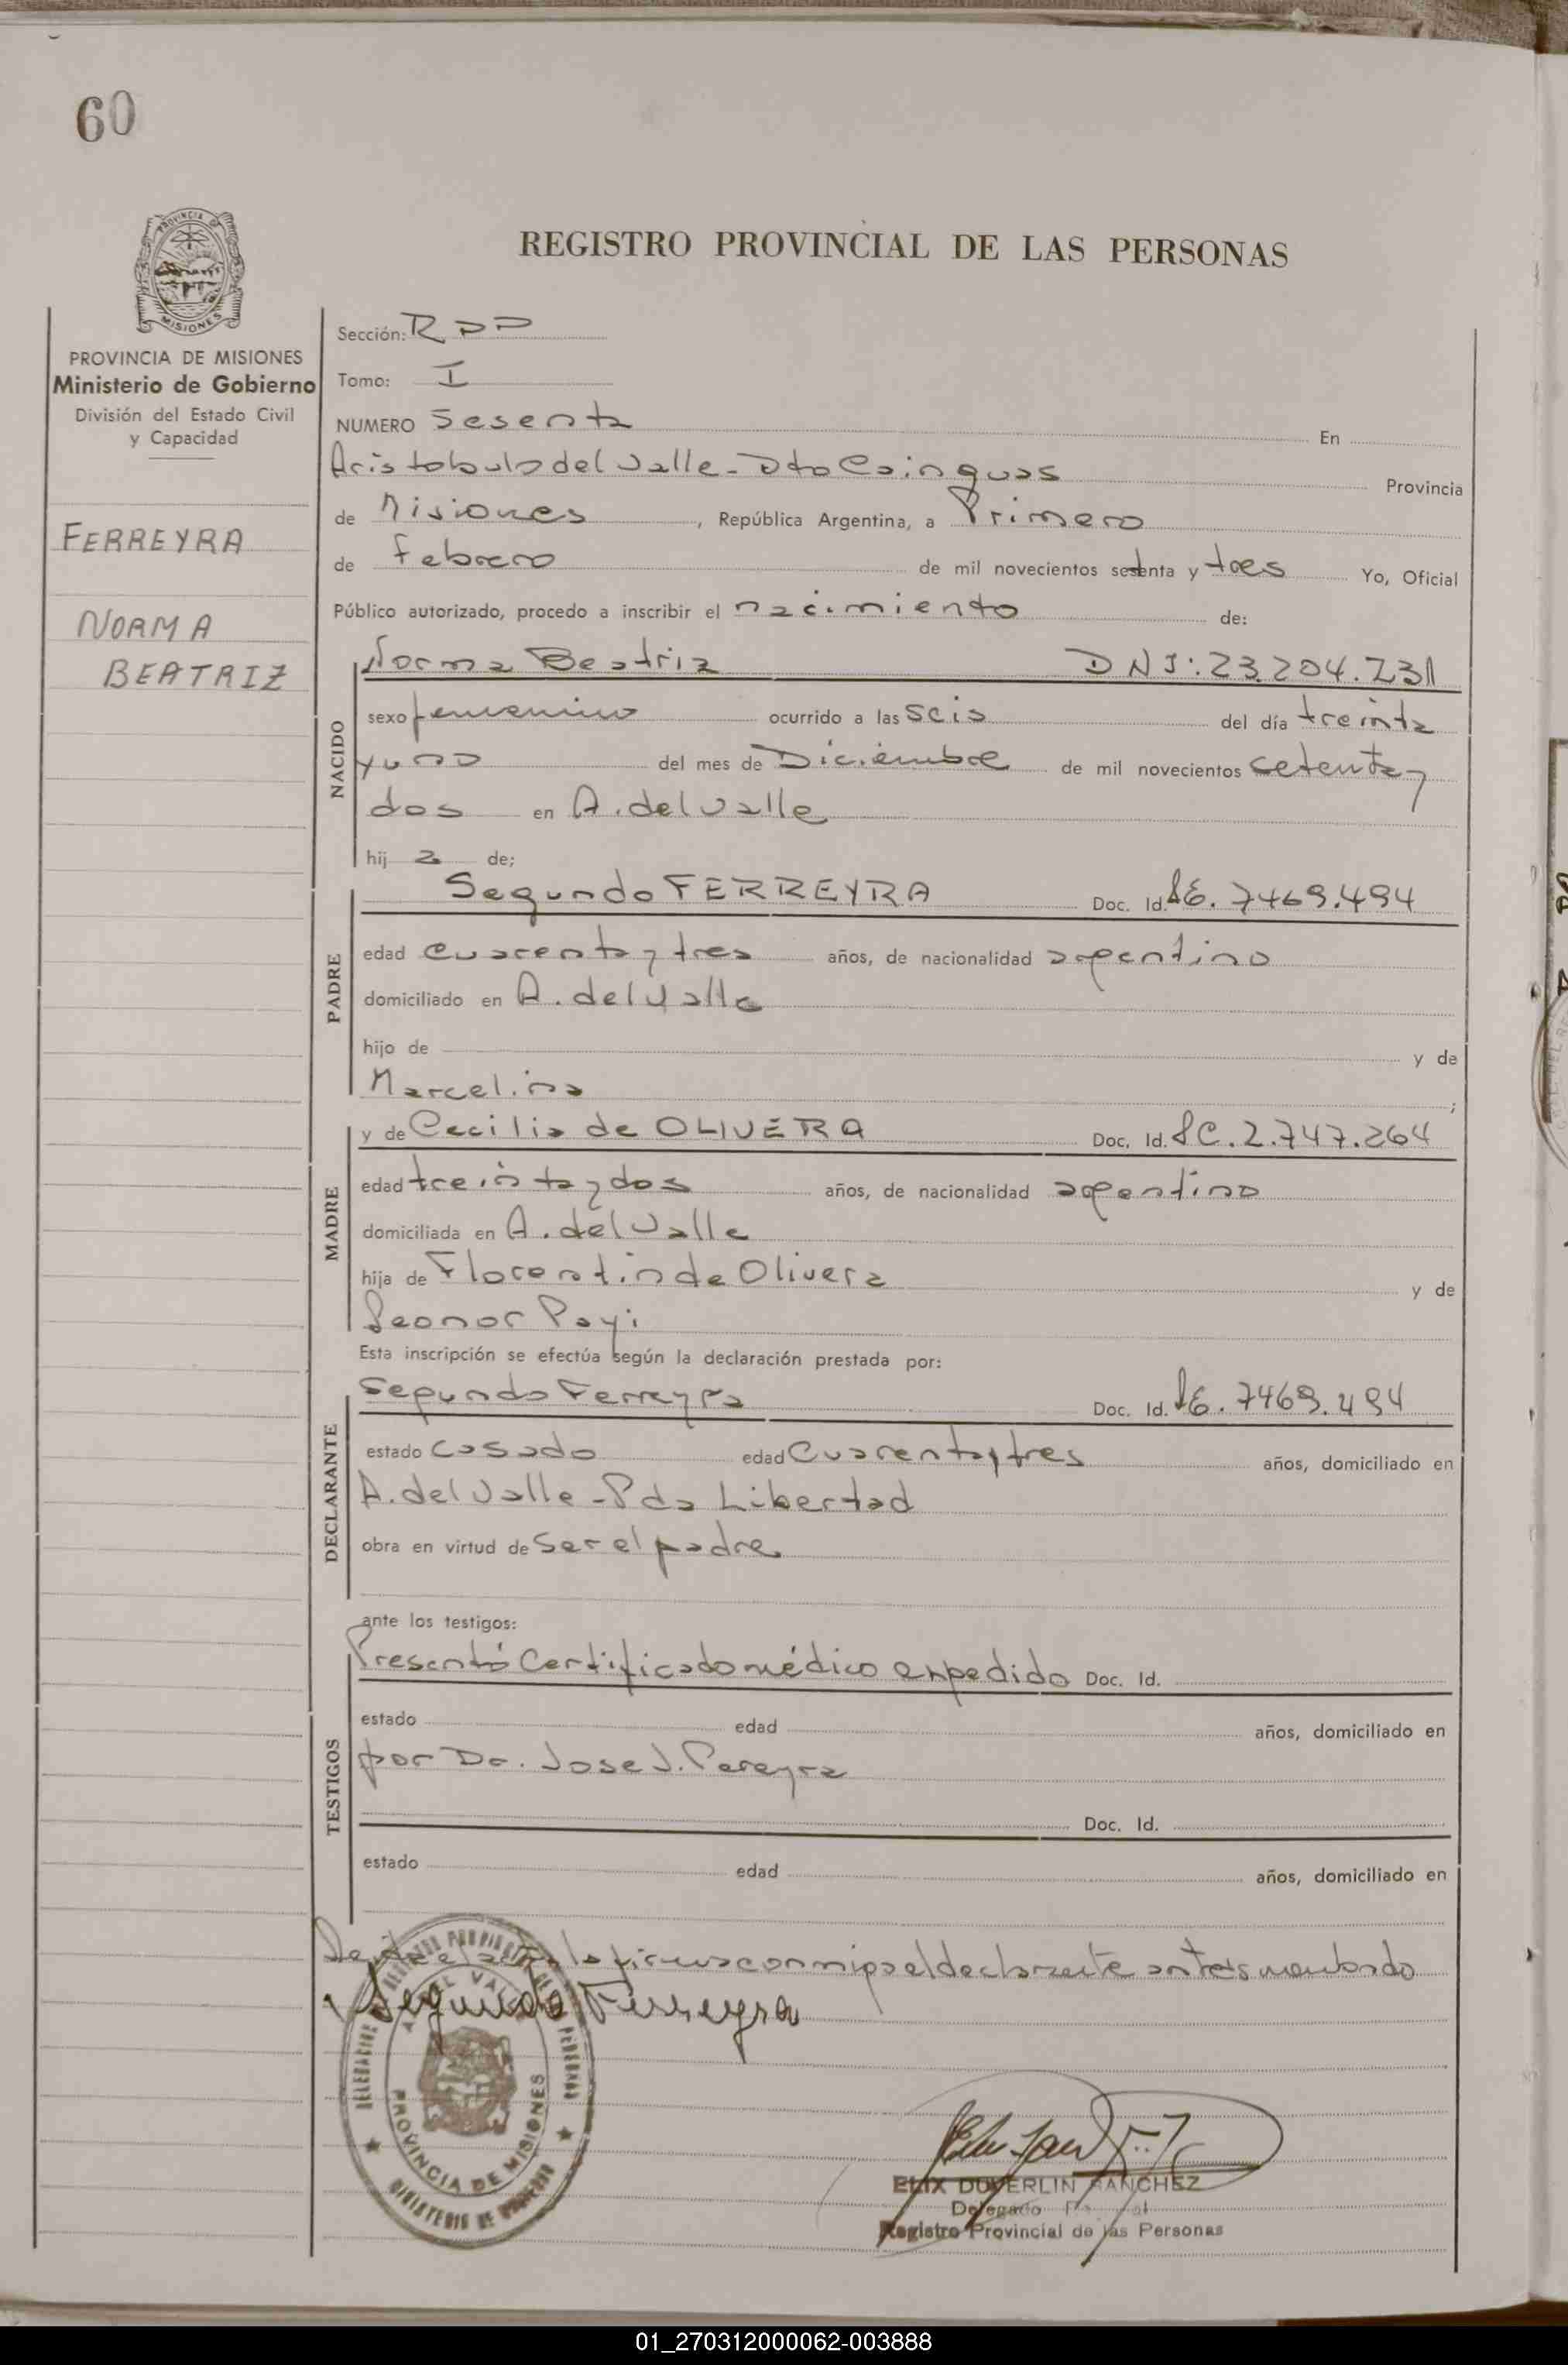 60
REGISTRO PROVINCIAL DE LAS PERSONAS
PROVINCIA DE MISIONES
Ministerio de Gobierno
División del Estado Civil
y Capacidad
FERREYRA
NORMA
BEATRIZ
Sección: RPP
Tomo: I
NUMERO Sesenta En
Aristobulo del Valle - Dto Cainguas Provincia
de Misiones, República Argentina, a Primero
de Febrero de mil novecientos setenta y tres Yo, Oficial
Público autorizado, procedo a inscribir el nacimiento de:
NACIDO
Norma Beatriz DNI: 23.204.231
sexo femenino ocurrido a las seis del día treinta
y uno del mes de Diciembre de mil novecientos setenta y
dos en A. del Valle
hij a de;
PADRE
Segundo FERREYRA Doc. Id. LE. 7469.494
edad cuarenta y tres años, de nacionalidad argentino
domiciliado en A. del Valle
hijo de y de
Marcelina ;
MADRE
y de Cecilia de OLIVERA Doc. Id. LC. 2.747.264
edad treinta y dos años, de nacionalidad argentina
domiciliada en A. del Valle
hija de Florentin de Olivera y de
Leonor Payi
Esta inscripción se efectúa según la declaración prestada por:
DECLARANTE
Segundo Ferreyra Doc. Id. LE. 7469.494
estado casado edad Cuarenta y tres años, domiciliado en
A. del Valle - Pda Libertad
obra en virtud de ser el padre
ante los testigos:
TESTIGOS
Presentó Certificado médico expedido Doc. Id.
estado edad años, domiciliado en
por Dr. Jose J. Pereyra
Doc. Id.
estado edad años, domiciliado en
Leida el acta la firma conmigo el declarante antes mentado
Segundo Ferreyra
PROVINCIA DE MISIONES
ELIX DUVERLIN SANCHEZ
Delegado
Registro Provincial de las Personas
01_270312000062-003888